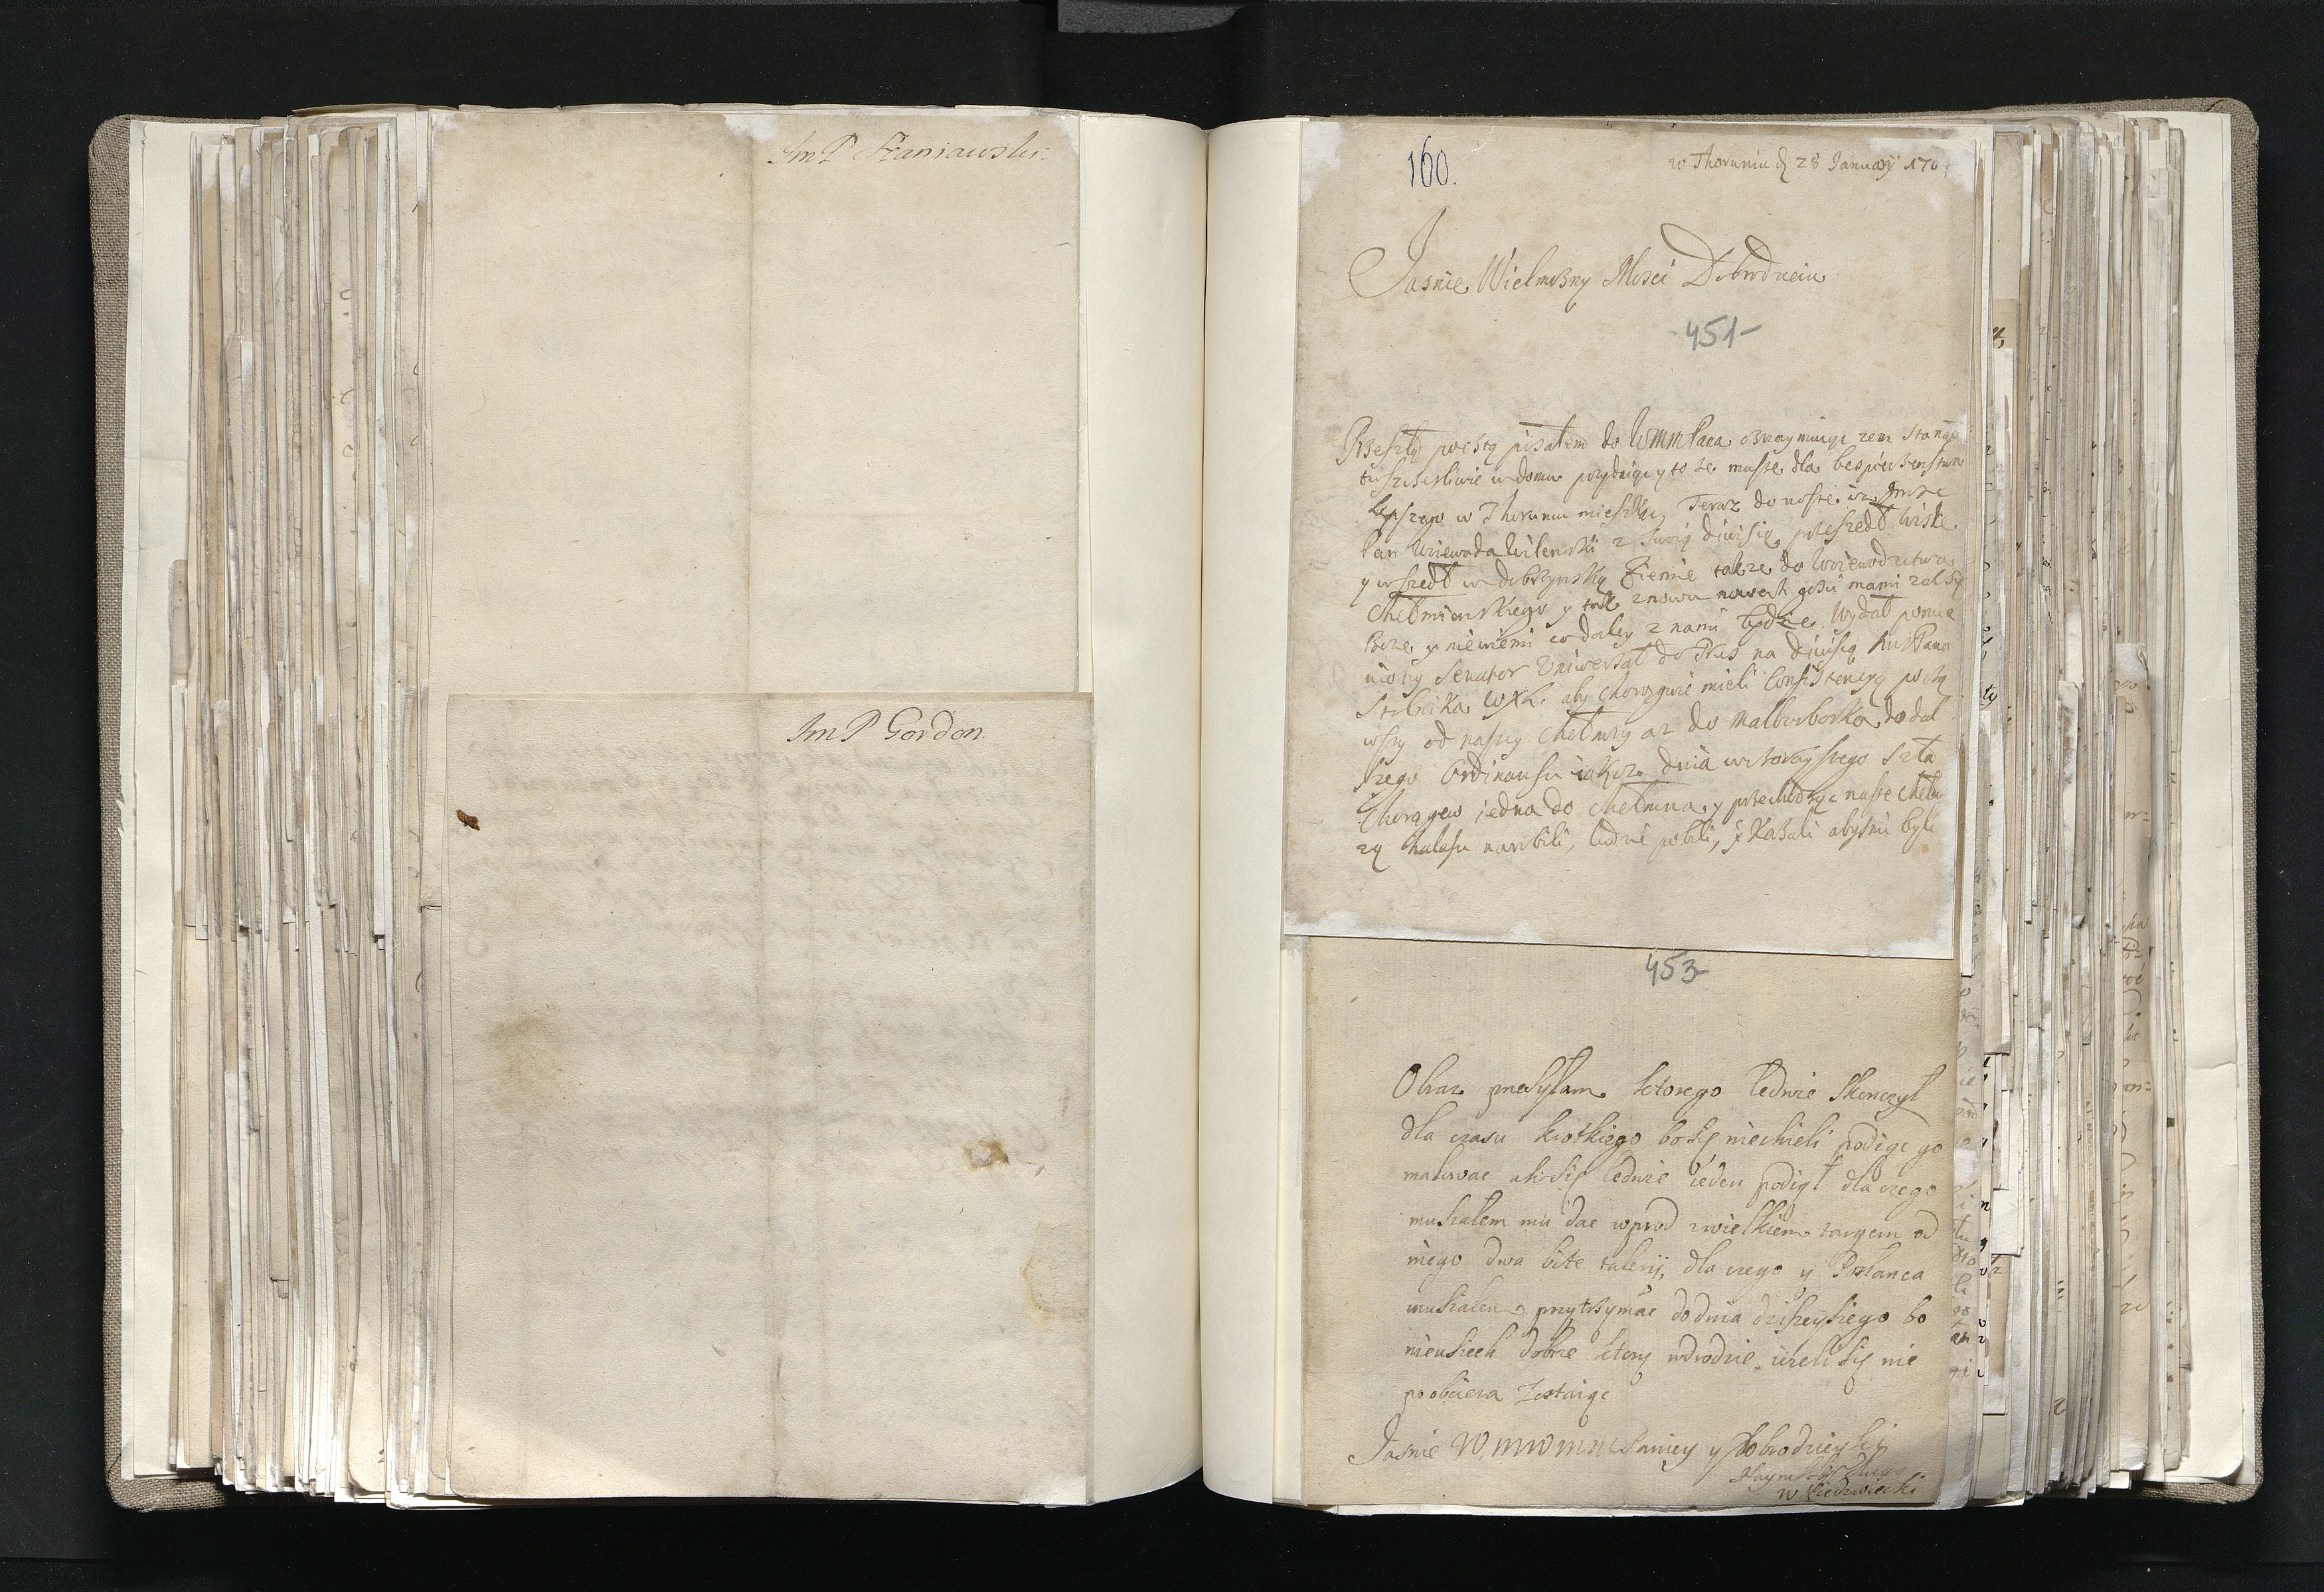 Jm P Staniawski
Jm P Gordon.
160.
w Thoruniu d 28 January 170
Jasnie Wielmozny Mosci Dobrodzieiu
451
Przeszłą pocztą pisałem do WMMPana oznaymuiąc zem stanął
tu szczesliwie w domu y to ze musze dla bespieczenstwa
lepszego w Thoruniu mieszkac, Teraz donosze
Pan Woiewoda Wilenski z swoią diuisią przeszedł Wisłe
y wszedł w dobrzynską Ziemie takze do Woiewodztwa
Chełmienskiego y tak znowu nowych gosci mamy
Boze y niewiem co daley z nami będzie Wydał
Senator Vniwersał do Prus na diuisią
Stolnika WXL. aby Chorągwie mieli Consistencyą
wszy od naszey Chełmzy az do Malborborka do dal
szego Ordinansu iakoz dnia wczorayszego szła
Chorągiew iedna do Chełmna y przechodząc nasze Chełm
zą hałasu narobili, ludzie pobili, y Kazali abysmi byli
453
Obraz przesyłam ktorego ledwie skonczył
dla czasu krotkiego bo się niechieli podiąc go
malowac ali się ledwie ieden podiął dla czego
musiałem mu dac wprzod zwielkiem targem od
niego dwa bite talerij, dla czego y Posłanca
musiałem przytrzymac do dnia dziszeyszego bo
nieusech dobrze ktory wdrodze iezeli się nie
poobciera Zostaię
Jasnie WMMPaniey y Dobrodzieyki
Naynizszy Sługa
W Niedzwiecki